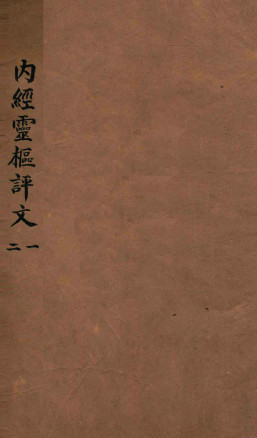 內經靈樞評文
一二